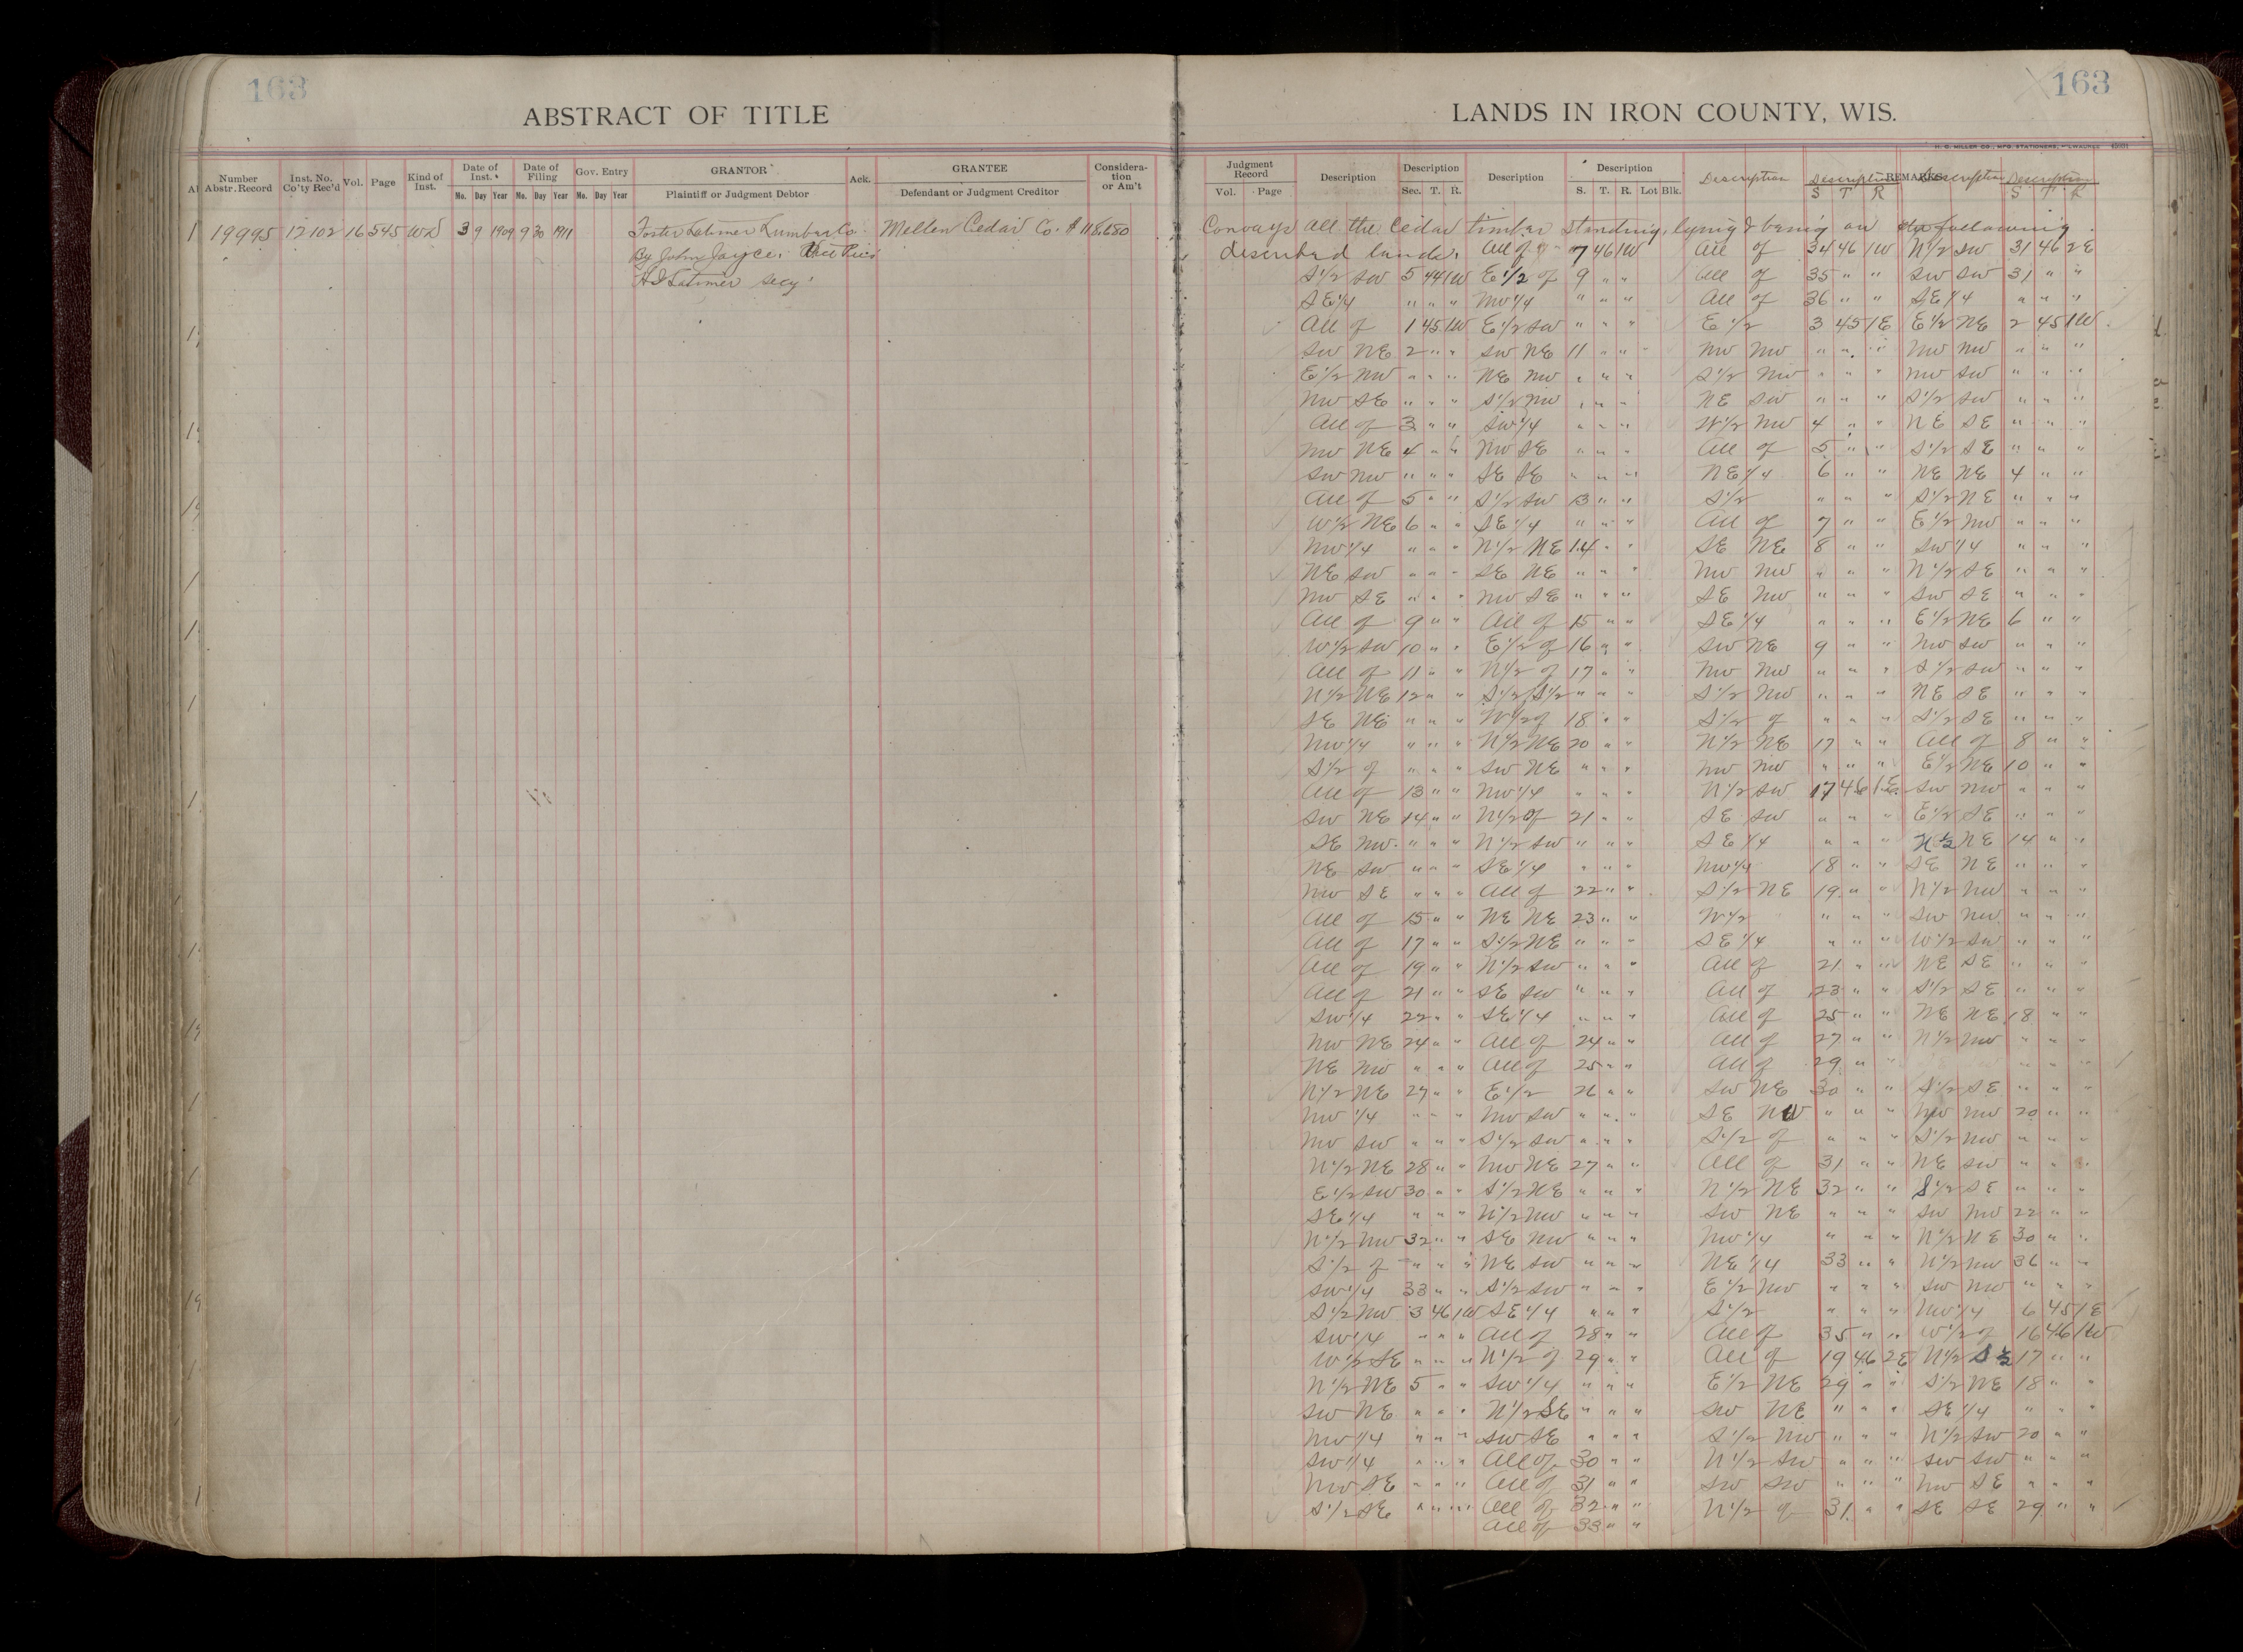 163
163
ABSTRACT OF TITLE
LANDS IN IRON COUNTY, WIS.
H. C. MILLER CO., MFG. STATIONERS, MILWAUKEE
Number Abstr. Record
Inst. No. Co'ty Rec'd
Vol.
Page
Kind of Inst.
Date of Inst. Mo. Day Year
Date of Filing Mo. Day Year
Gov. Entry Mo. Day Year
GRANTOR Plaintiff or Judgment Debtor
Ack.
GRANTEE Defendant or Judgment Creditor
Considera-tion or Am't
Judgment Record Vol. Page
Description
Description Sec. T. R.
Description
Description S. T. R. Lot Blk.
Description
Description S T R
REMARKS
Description
Description S T R
19995 12102 16 545 WD 3 9 1909 9 30 1911 Foster Latimer Lumber Co. Mellen Cedar Co. $118,680
By John Joyce, Vice Pres
H S Latimer Secy
Conveys all the Cedar timber standing, lying & being on the following
described lands. All of 7 46 1W All of 34 46 1W N1/2 SW 31 46 2E
S1/2 SW 5 44 1W E1/2 of 9 " " All of 35 " " SW SW 31 " "
SE1/4 " " " NW1/4 " " " All of 36 " " SE1/4 " " "
All of 1 45 1W E1/2 SW " " " E1/2 3 45 1E E1/2 NE 2 45 1W
SW NE 2 " " SW NE 11 " " NW NW " " " NW NW " " "
E1/2 NW " " " NE NW " " " S1/2 NW " " " NW SW " " "
NW SE " " " S1/2 NW " " " NE SW " " " S1/2 SW " " "
All of 3 " " SW1/4 " " " W1/2 NW 4 " " NE SE " " "
NW NE 4 " " NW SE " " " All of 5 " " S1/2 SE " " "
SW NW " " " SE SE " " " NE1/4 6 " " NE NE 4 " "
All of 5 " " S1/2 SW 13 " " S1/2 " " " S1/2 NE " " "
W1/2 NE 6 " " SE1/4 " " " All of 7 " " E1/2 NW " " "
NW1/4 " " " N1/2 NE 14 " " SE NE 8 " " SW1/4 " " "
NE SW " " " SE NE " " " NW NW " " " N1/2 SE " " "
NW SE " " " NW SE " " " SE NW " " " SW SE " " "
All of 9 " " All of 15 " " SE1/4 " " " E1/2 NE 6 " "
W1/2 SW 10 " " E1/2 of 16 " " SW NE 9 " " NW SW " " "
All of 11 " " N1/2 of 17 " " NW NW " " " S1/2 SW " " "
N1/2 NE 12 " " S1/2 S1/2 " " " S1/2 NW " " " NE SE " " "
SE NE " " " W1/2 of 18 " " S1/2 of " " " S1/2 SE " " "
NW1/4 " " " N1/2 NE 20 " " N1/2 NE 17 " " All of 8 " "
S1/2 of " " " SW NE " " " NW NW " " " E1/2 NE 10 " "
All of 13 " " NW1/4 " " " N1/2 SW 17 46 1E SW NW " " "
SW NE 14 " " N1/2 of 21 " " SE SW " " " E1/2 SE " " "
SE NW " " " N1/2 SW " " " SE1/4 " " " N1/2 NE 14 " "
NE SW " " " SE1/4 " " " NW1/4 18 " " SE NE " " "
NW SE " " " All of 22 " " S1/2 NE 19 " " N1/2 NW " " "
All of 15 " " NE NE 23 " " W1/2 " " " SW NW " " "
All of 17 " " S1/2 NE " " " SE1/4 " " " W1/2 SW " " "
All of 19 " " N1/2 SW " " " All of 21 " " NE SE " " "
All of 21 " " SE SW " " " All of 23 " " S1/2 SE " " "
SW1/4 22 " " SE1/4 " " " All of 25 " " NE NE 18 " "
NW NE 24 " " All of 24 " " All of 27 " " N1/2 NW " " "
NE NW " " " All of 25 " " All of 29 " "
N1/2 NE 27 " " E1/2 26 " " SW NE 30 " " S1/2 SE " " "
NW 1/4 " " " NW SW " " " SE NW " " " NW NW 20 " "
NW SW " " " S1/2 SW " " " S1/2 of " " " S1/2 NW " " "
N1/2 NE 28 " " NW NE 27 " " All of 31 " " NE SW " " "
E1/2 SW 30 " " S1/2 NE " " " N1/2 NE 32 " " S1/2 SE " " "
SE1/4 " " " N1/2 NW " " " SW NE " " " SW NW 22 " "
N1/2 NW 32 " " SE NW " " " NW1/4 " " " N1/2 NE 30 " "
S1/2 of " " " NE SW " " " NE1/4 33 " " N1/2 NW 36 " "
SW1/4 33 " " S1/2 SW " " " E1/2 NW " " " SW NW " " "
S1/2 NW 3 46 1W SE1/4 " " " S1/2 " " " NW1/4 6 45 1E
SW1/4 " " " All of 28 " " All of 35 " " W1/2 of 16 46 1W
W1/2 SE " " " N1/2 of 29 " " All of 19 46 2E N1/2 S1/2 17 " "
N1/2 NE 5 " " SW1/4 " " " E1/2 NE 29 " " S1/2 NE 18 " "
SW NE " " " N1/2 SE " " " SW NE " " " SE1/4 " " "
NW1/4 " " " SW SE " " " S1/2 NW " " " N1/2 SW 20 " "
SW1/4 " " " All of 30 " " N1/2 SW " " " SW SW " " "
NW SE " " " All of 31 " " SW SW " " " NW SE " " "
S1/2 SE " " " All of 32 " " N1/2 of 31 " " SE SE 29 " "
All of 33 " "